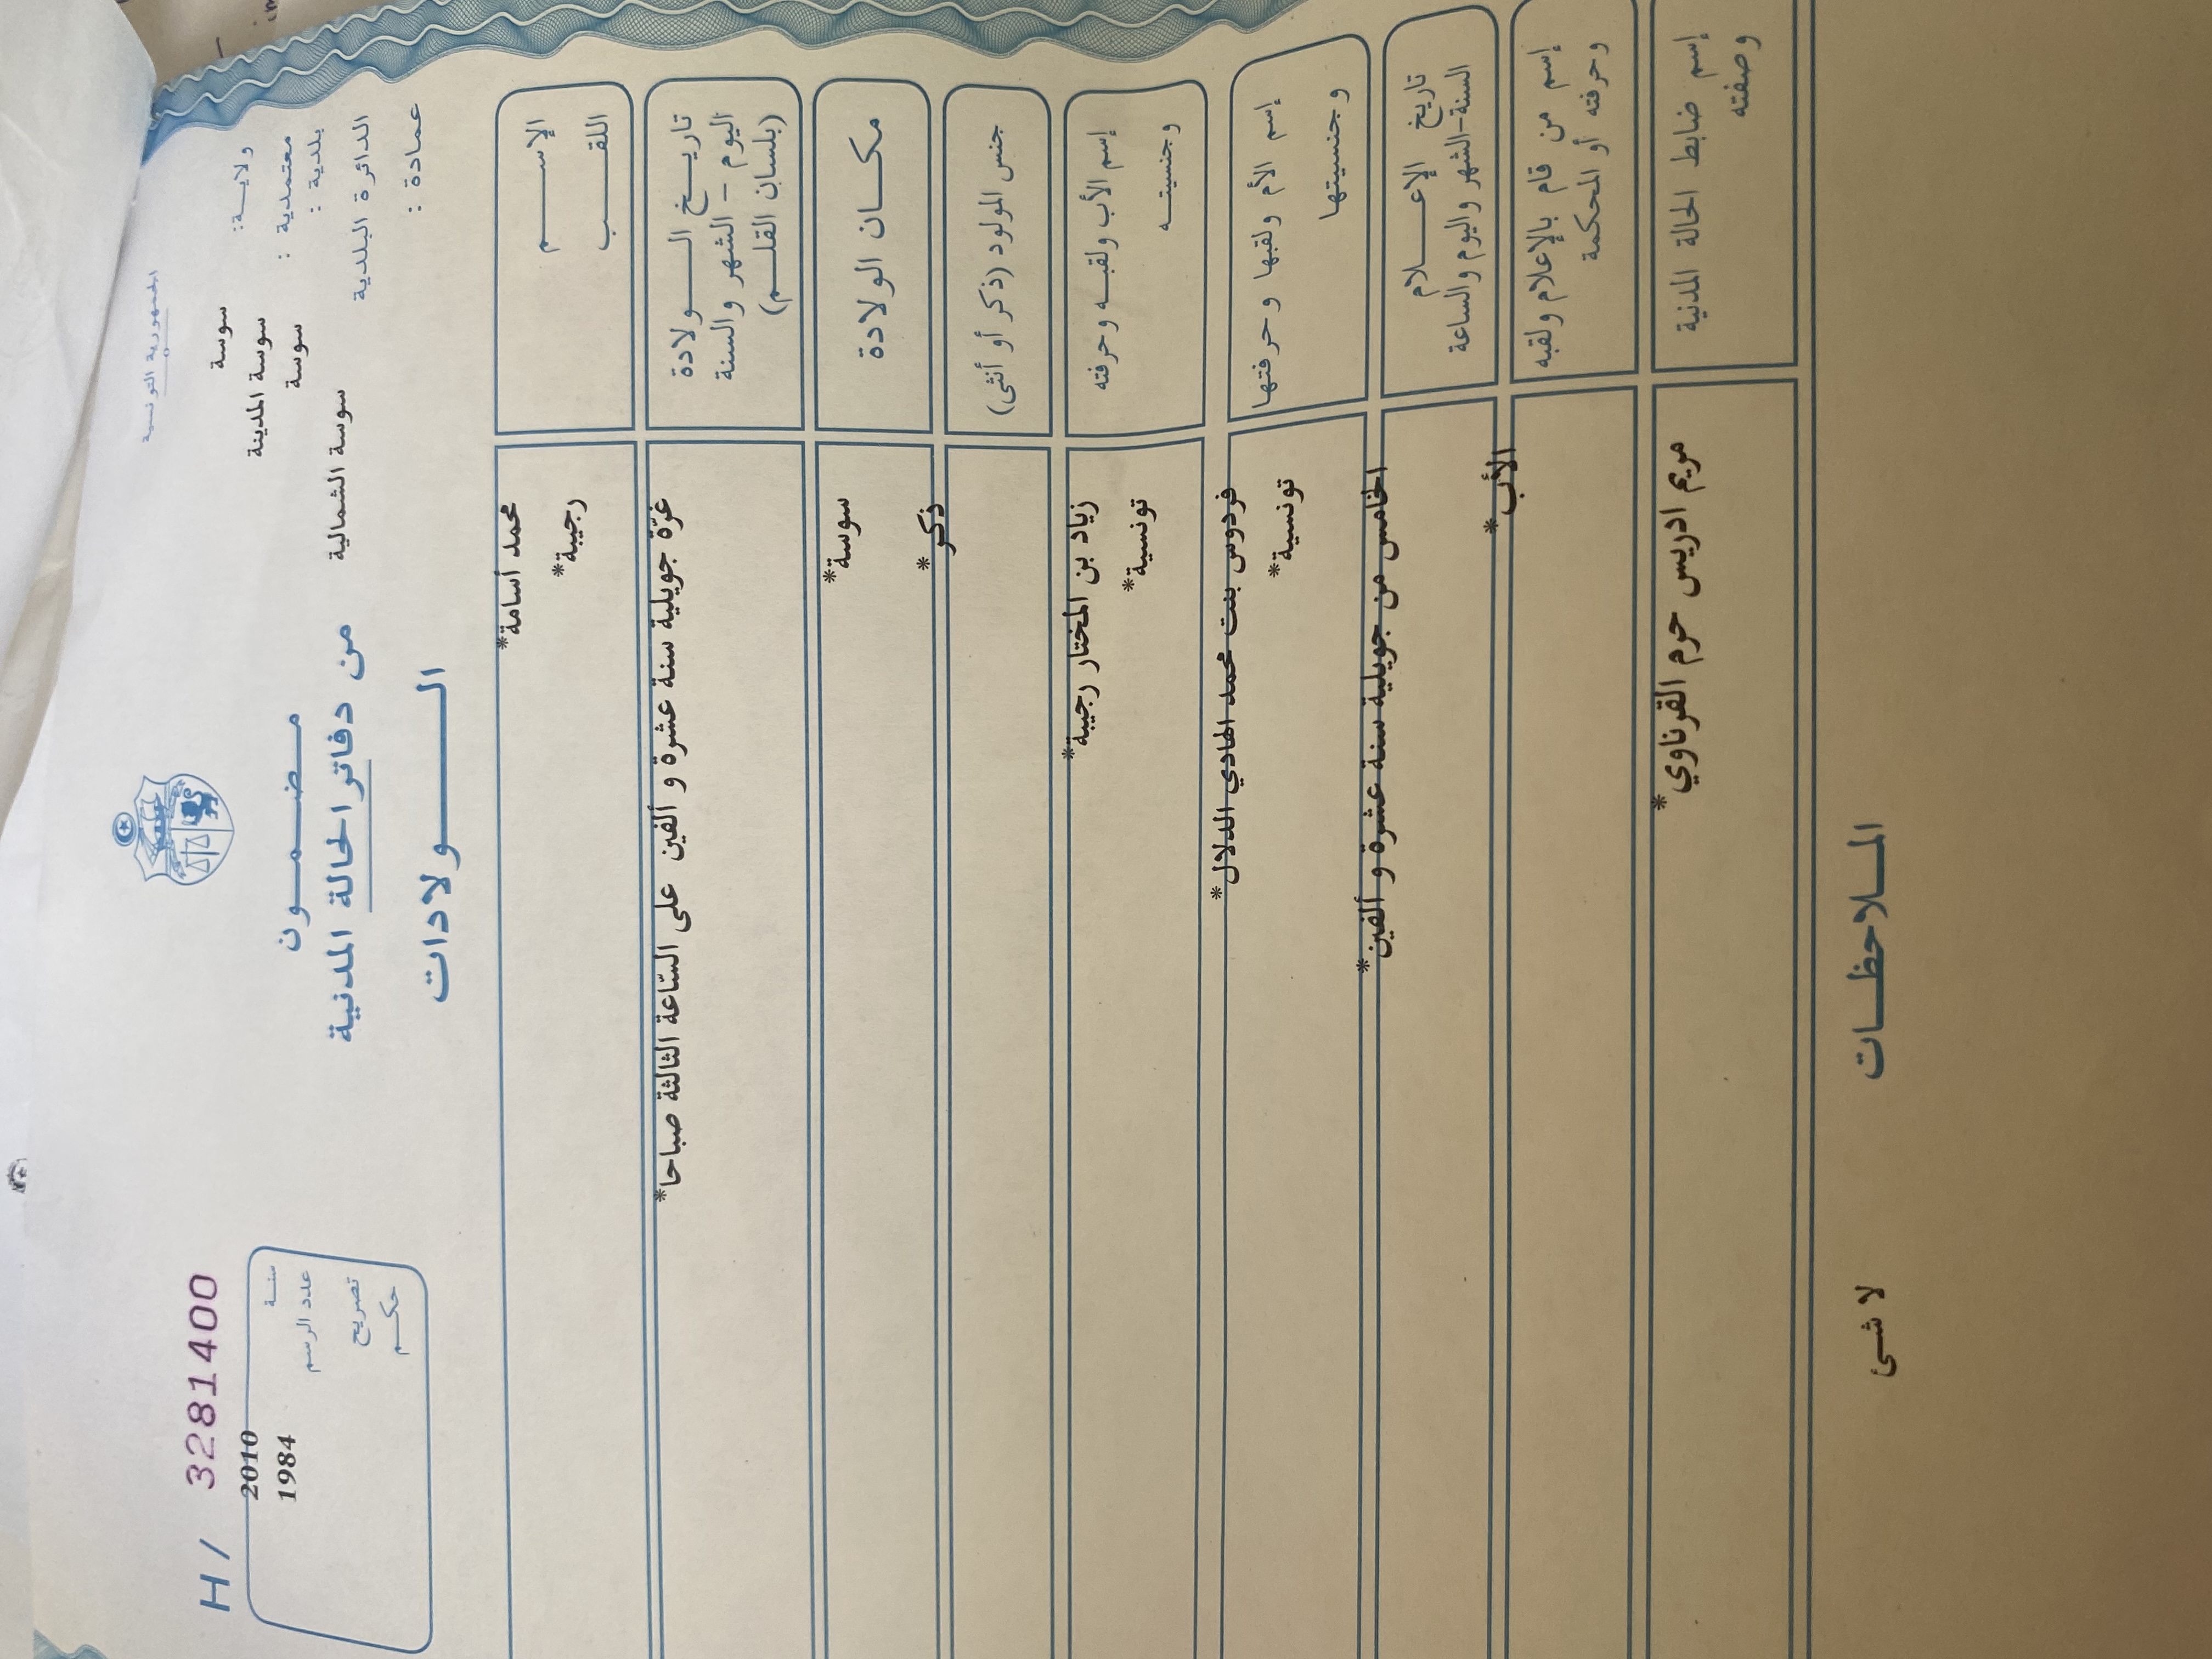 الجمهورية التونسية
ولايــة: سوسة
معتمدية : سوسة المدينة
بلدية : سوسة
الدائرة البلدية سوسة الشمالية
عمادة :
مـضـمـــون
من دفاتر الحالة المدنية
الــــولادات
H/ 3281400
سنــة 2010
عدد الرسم 1984
تصريح
حكــم
الإســـــم محمد أسامة*
اللقـــــب رجيبة*
تاريـــخ الــــولادة غرّة جويلية سنة عشرة و ألفين على السّاعة الثالثة صباحا*
اليوم - الشهر والسنة
(بلسان القلــم)
مكــان الولادة سوسة*
جنس المولود (ذكر أو أنثى) ذكر*
إسم الأب ولقبــه وحرفته زياد بن المختار رجيبة*
وجنسيتــه تونسية*
إسم الأم ولقبها وحرفتها فردوس بنت محمد الهادي الدلال*
وجنسيتها تونسية*
تاريخ الإعـــــلام الخامس من جويلية سنة عشرة و ألفين*
السنة-الشهر واليوم والساعة
إسم من قام بالإعلام ولقبه الأب*
وحرفته أو المحكمة
إسم ضابط الحالة المدنية مريم ادريس حرم القرناوي*
وصفته
المــلاحظــات
لا شئ